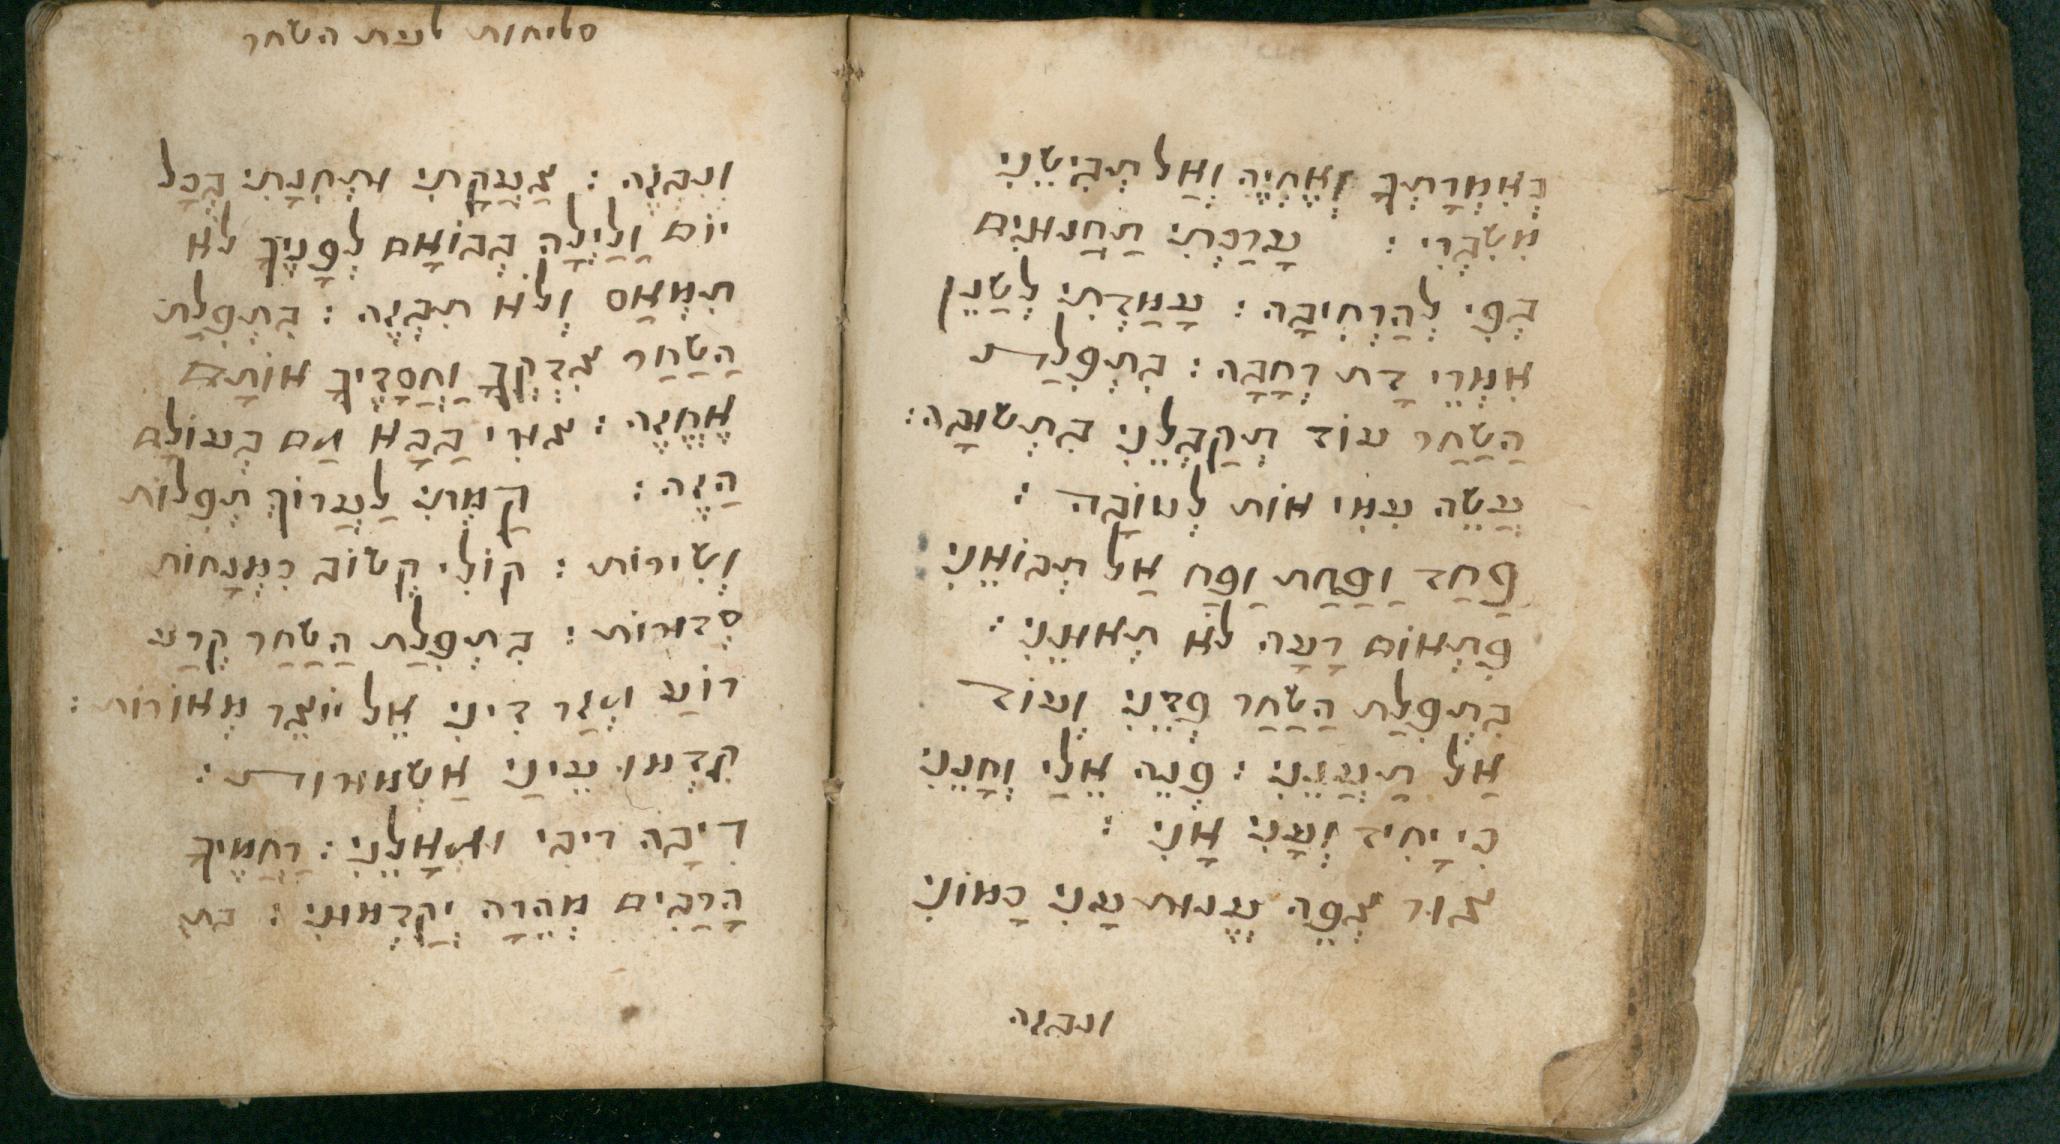 כְּאִמְרָתְךָ וְאֶחְיֶה וְאַל תְּבִישֵׁנִי
מִשִּׂבְרִי : עָרַכְתִּי תַּחֲנוּנִים
בְּפִי לְהַרְחִיבָה : עָמַדְתִּי לְשַׁנֵּן
אִמְרֵי דָת רְחָבָה : בִּתְפִלַּת
הַשַּׁחַר עוֹד תְּקַבְּלֵנִי בִּתְשׁוּבָה :
עֲשֵׂה עִמִּי אוֹת לְטוֹבָה :
פַּחַד וַפַּחַת וָפַח אַל תְּבוֹאֵנִי
פִּתְאוֹם רָעָה לֹא תְאוּנֵנִי :
בִּתְפִלַּת הַשַּׁחַר פְּדֵנִי וְעוֹד
אַל תַּעֲנֵנִי : פְּנֵה אֵלַי וְחָנֵּנִי
כִּי יָחִיד וְעָנִי אָנִי :
צוּר צְפֵה עֱנוּת עָנִי כָּמוֹנִי
ונבזה
סליחות לעת השחר
וְנִבְזֶה : צַעֲקָתִי וּתְחִנָּתִי בְּכָל
יוֹם וָלַיְלָה בְּבוֹאָם לְפָנֶיךָ לֹא
תִמְאַס וְלֹא תִבְזֶה : בִּתְפִלַּת
הַשַּׁחַר צִדְקְךָ וַחֲסָדֶיךָ אוֹתָם
אֶחֱזֶה : צוּרִי בַּבָּא גַּם בְּעוֹלָם
הַזֶּה : קַמְתִּי לַעֲרוֹךְ תְּפִלּוֹת
וְשִׁירוֹת : קוֹלִי קְשׁוֹב כִּמְנָחוֹת
סְדוּרוֹת : בִּתְפִלַּת הַשַּׁחַר קְרַע
רוֹעַ וּגְזַר דִּינִי אֵל יוֹצֵר מְאוֹרוֹת :
קִדְּמוּ עֵינַי אַשְׁמוּרוֹת :
רִיבָה רִיבִי וּגְאָלֵנִי : רַחֲמֶיךָ
הָרַבִּים מְהֵרָה יְקַדְּמוּנִי : בת